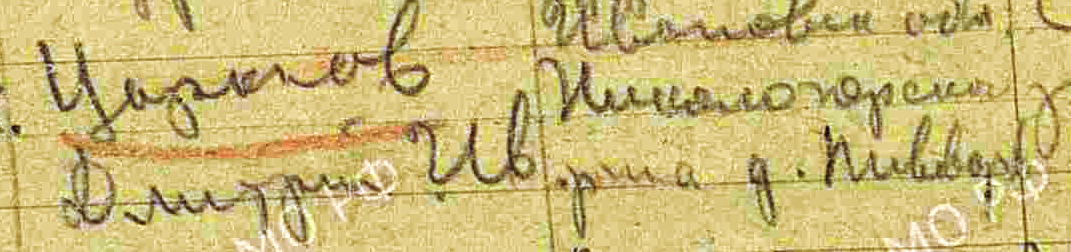 Царьков
Дмитрий Ив
Ивановск обл
Никологорска
р-на д. Пивовар
МО РФ
МО РФ